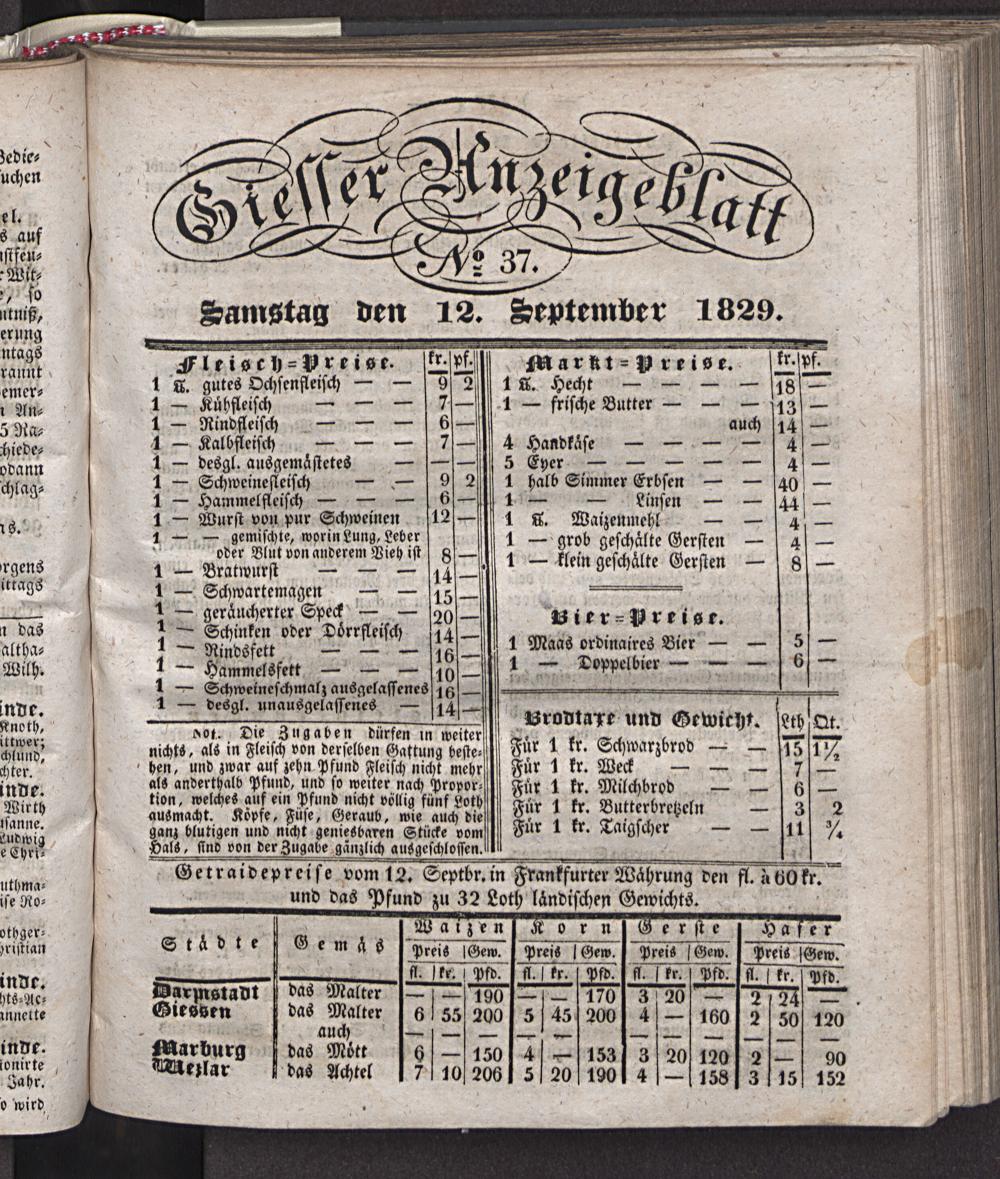 Bedie=
uchen
el.
s auf
nstfeu=
r Wit=
e, so
ntniß,
erung
ntags
rannt
emer=
n An=
5 Ra=
chiede=
odann
chlag=
as.
orgens
ittags
n das
altha=
Wilh.
inde.
Knoth,
ittwer;
chlund,
chter.
inde.
Wirth
usanne.
Ludwig
e Chri=
uthma=
ise Ro=
othger=
hristian
inde.
hts=Ac=
annette
inde.
ionirte
Jahr.
so wird
Giesser Anzeigeblatt
No 37.
Samstag den 12. September 1829.
Fleisch=Preise. kr. pf.
1 ℔. gutes Ochsenfleisch — — 9 2
1 — Kühfleisch — — — 7 —
1 — Rindfleisch — — — 6 —
1 — Kalbfleisch — — — 7 —
1 — desgl. ausgemästetes — — —
1 — Schweinefleisch — — 9 2
1 — Hammelfleisch — — — 6 —
1 — Wurst von pur Schweinen 12 —
1 — — gemischte, worin Lung, Leber
oder Blut von anderem Vieh ist 8 —
1 — Bratwurst — — — 14 —
1 — Schwartemagen — — 15 —
1 — geräucherter Speck — — 20 —
1 — Schinken oder Dörrfleisch 14 —
1 — Rindsfett — — — 16 —
1 — Hammelsfett — — — 10 —
1 — Schweineschmalz ausgelassenes 16 —
1 — desgl. unausgelassenes — 14 —
Not. Die Zugaben dürfen in weiter
nichts, als in Fleisch von derselben Gattung beste=
hen, und zwar auf zehn Pfund Fleisch nicht mehr
als anderthalb Pfund, und so weiter nach Propor=
tion, welches auf ein Pfund nicht völlig fünf Loth
ausmacht. Köpfe, Füse, Geraub, wie auch die
ganz blutigen und nicht geniesbaren Stücke vom
Hals, sind von der Zugabe gänzlich ausgeschlossen.
Markt=Preise. kr. pf.
1 ℔. Hecht — — — — 18 —
1 — frische Butter — — — 13 —
auch 14 —
4 Handkäse — — — — 4 —
5 Eyer — — — — 4 —
1 halb Simmer Erbsen — — 40 —
1 — — Linsen — — 44 —
1 ℔. Waizenmehl — — 4 —
1 — grob geschälte Gersten — 4 —
1 — klein geschälte Gersten — 8 —
Bier=Preise.
1 Maas ordinaires Bier — — 5 —
1 — Doppelbier — — 6 —
Brodtaxe und Gewicht. Lth Qt.
Für 1 kr. Schwarzbrod — — 15 1½
Für 1 kr. Weck — — — 7 —
Für 1 kr. Milchbrod — — 6 —
Für 1 kr. Butterbretzeln — 3 2
Für 1 kr. Taigscher — — 11 ¾
Getraidepreise vom 12. Septbr. in Frankfurter Währung den fl. à 60 kr.
und das Pfund zu 32 Loth ländischen Gewichts.
Städte Gemäs Waizen Korn Gerste Hafer
Preis Gew. Preis Gew. Preis Gew. Preis Gew.
fl. kr. Pfd. fl. kr. Pfd. fl. kr. Pfd. fl. kr. Pfd.
Darmstadt das Malter — — 190 — — 170 3 20 — 2 24 —
Giessen das Malter 6 55 200 5 45 200 4 — 160 2 50 120
auch — — — — — — — — — — — —
Marburg das Mött 6 — 150 4 — 153 3 20 120 2 — 90
Wezlar das Achtel 7 10 206 5 20 190 4 — 158 3 15 152